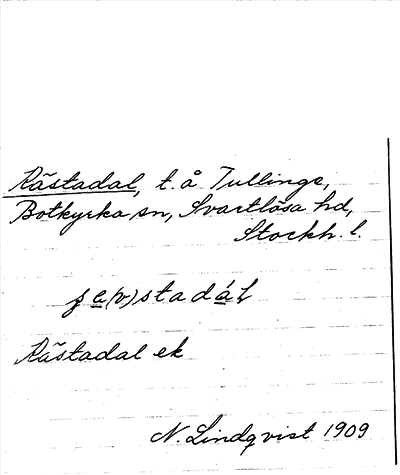 Råstadal, t. å Tullinge,
Botkyrka sn, Svartlösa hd,
Stockh. l.
stadál
Råstadal ek
N. Lindqvist 1909